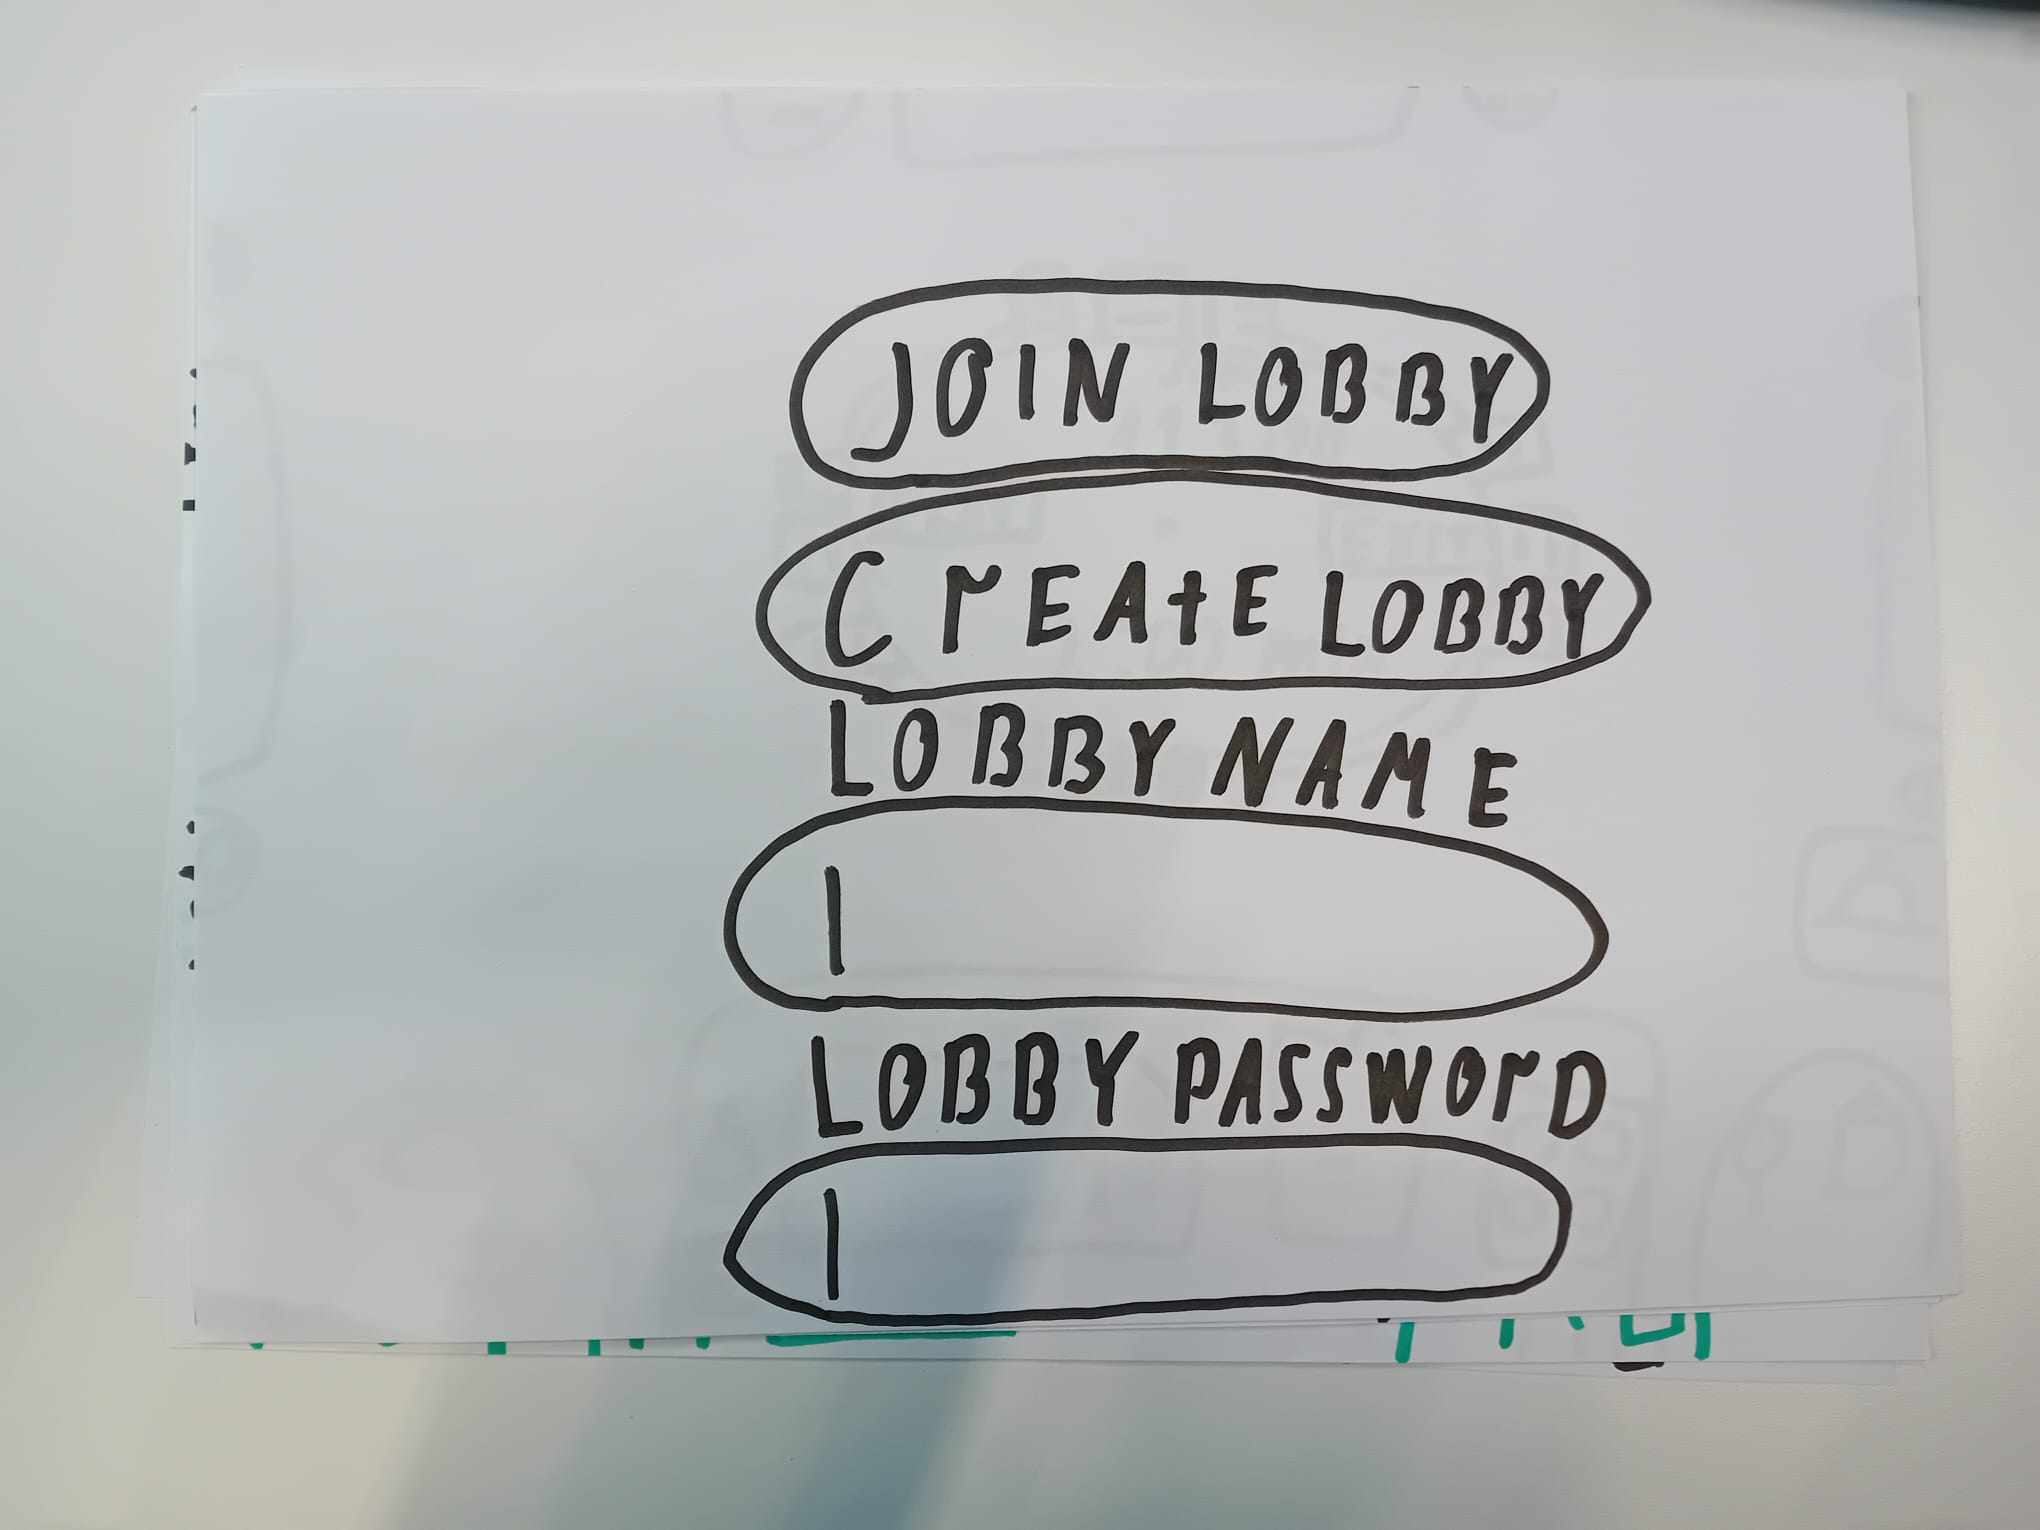 JOIN LOBBY
CrEAtE LOBBY
LOBBY NAME
LOBBY PASSWOrD